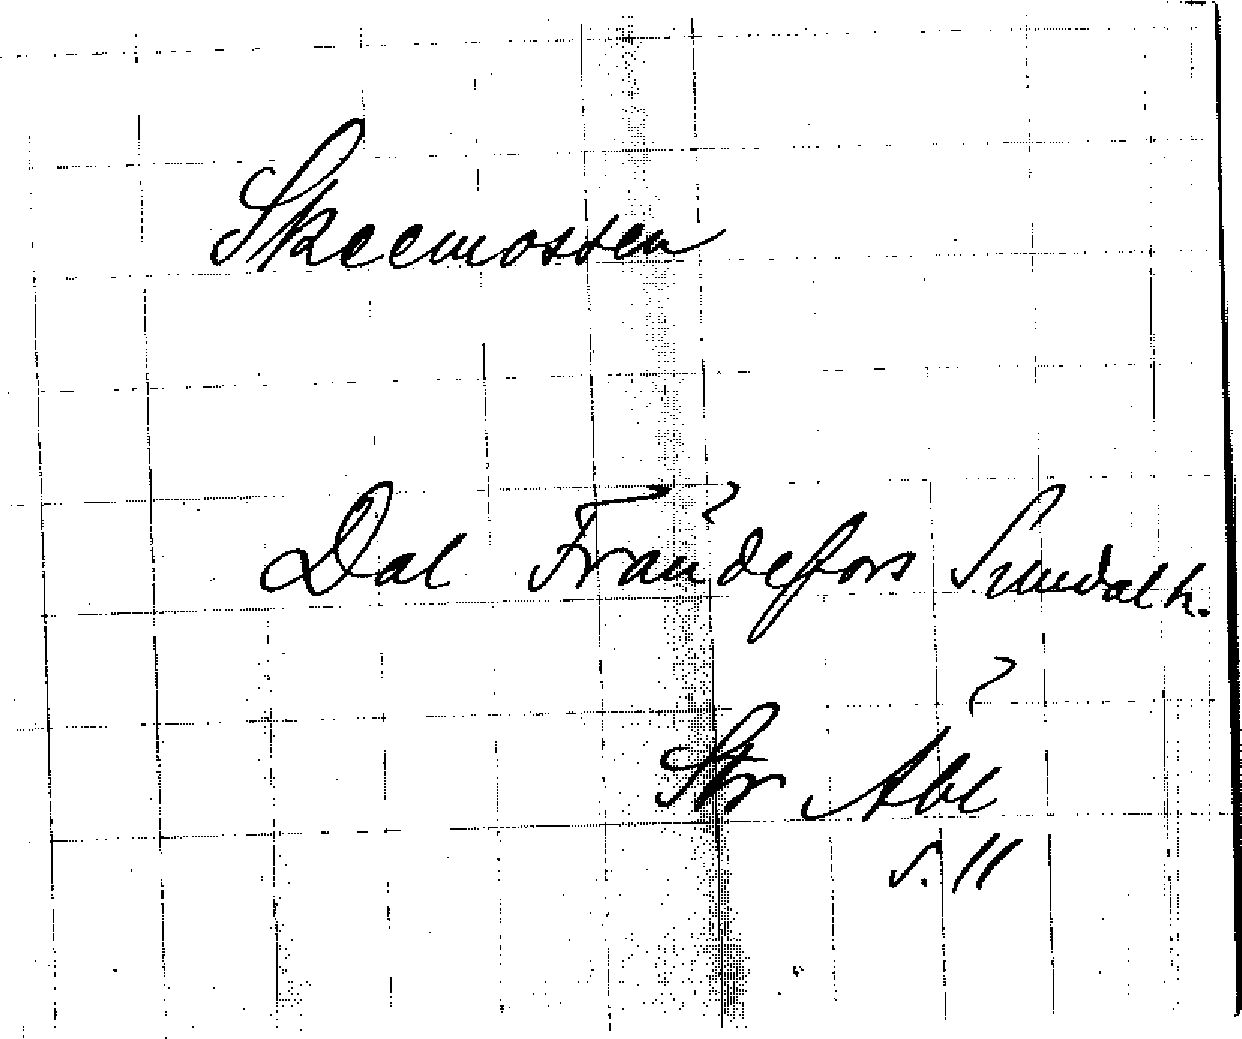 Skeemossen
Dal Frändefors Sundal h.
Str Abl
s. 11